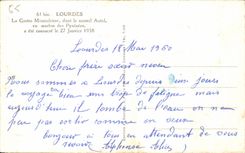 61 bis. LOURDES
La Grotte Miraculeuse, dont le nouvel Autel,
en marbre des Pyrénées,
a été consacré le 27 janvier 1958
Lourdes 18 Mai 1960
Chère
nous sommes à Lourdes depuis deux jours
le voyage bien un peu de fatigue mais
aujourd'hui il tombe de l'eau on ne
peu pas sortir comme on veux
bonjour à tous en attendant de vous
Alphonse